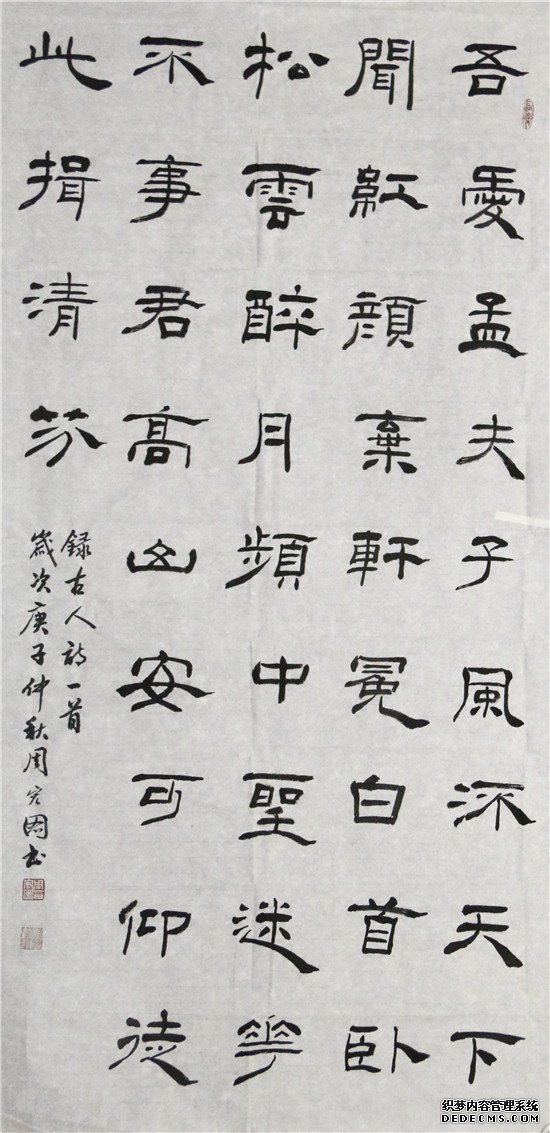 吾愛孟夫子風流天下
聞紅顔棄軒冕白首卧
松雲醉月頻中聖迷花
不事君高山安可仰徒
此揖清芬
録古人詩一首
歲次庚子仲秋周
织梦内容管理系统
DEDECMS.COM